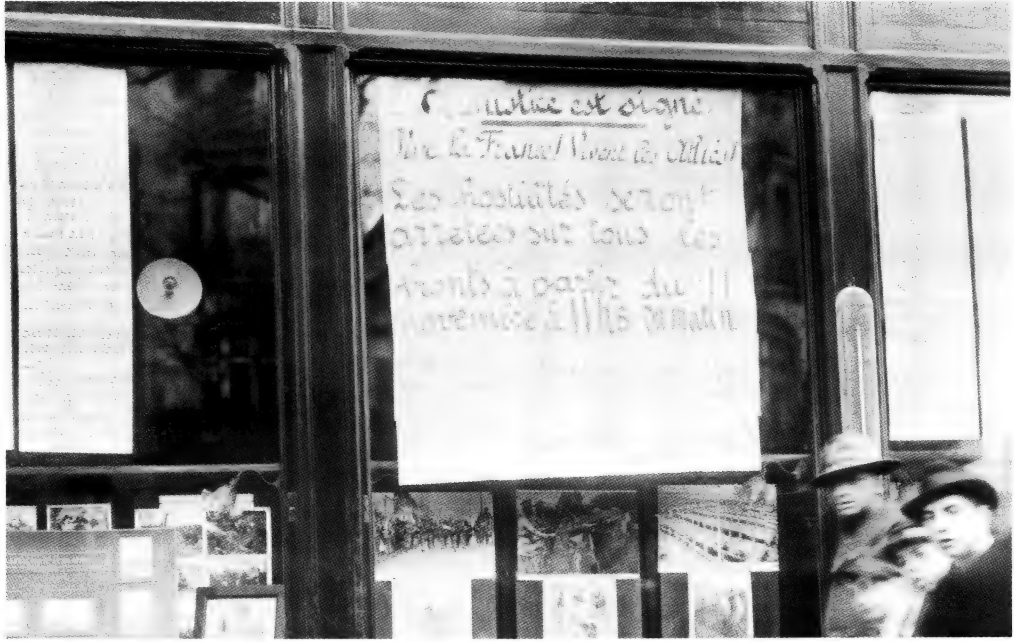 L'Armistice est signé
Vive la France! Vivent les Alliés!
Les hostilités seront
arretées sur tous les
fronts à partir du 11
novembre à 11 hs du matin